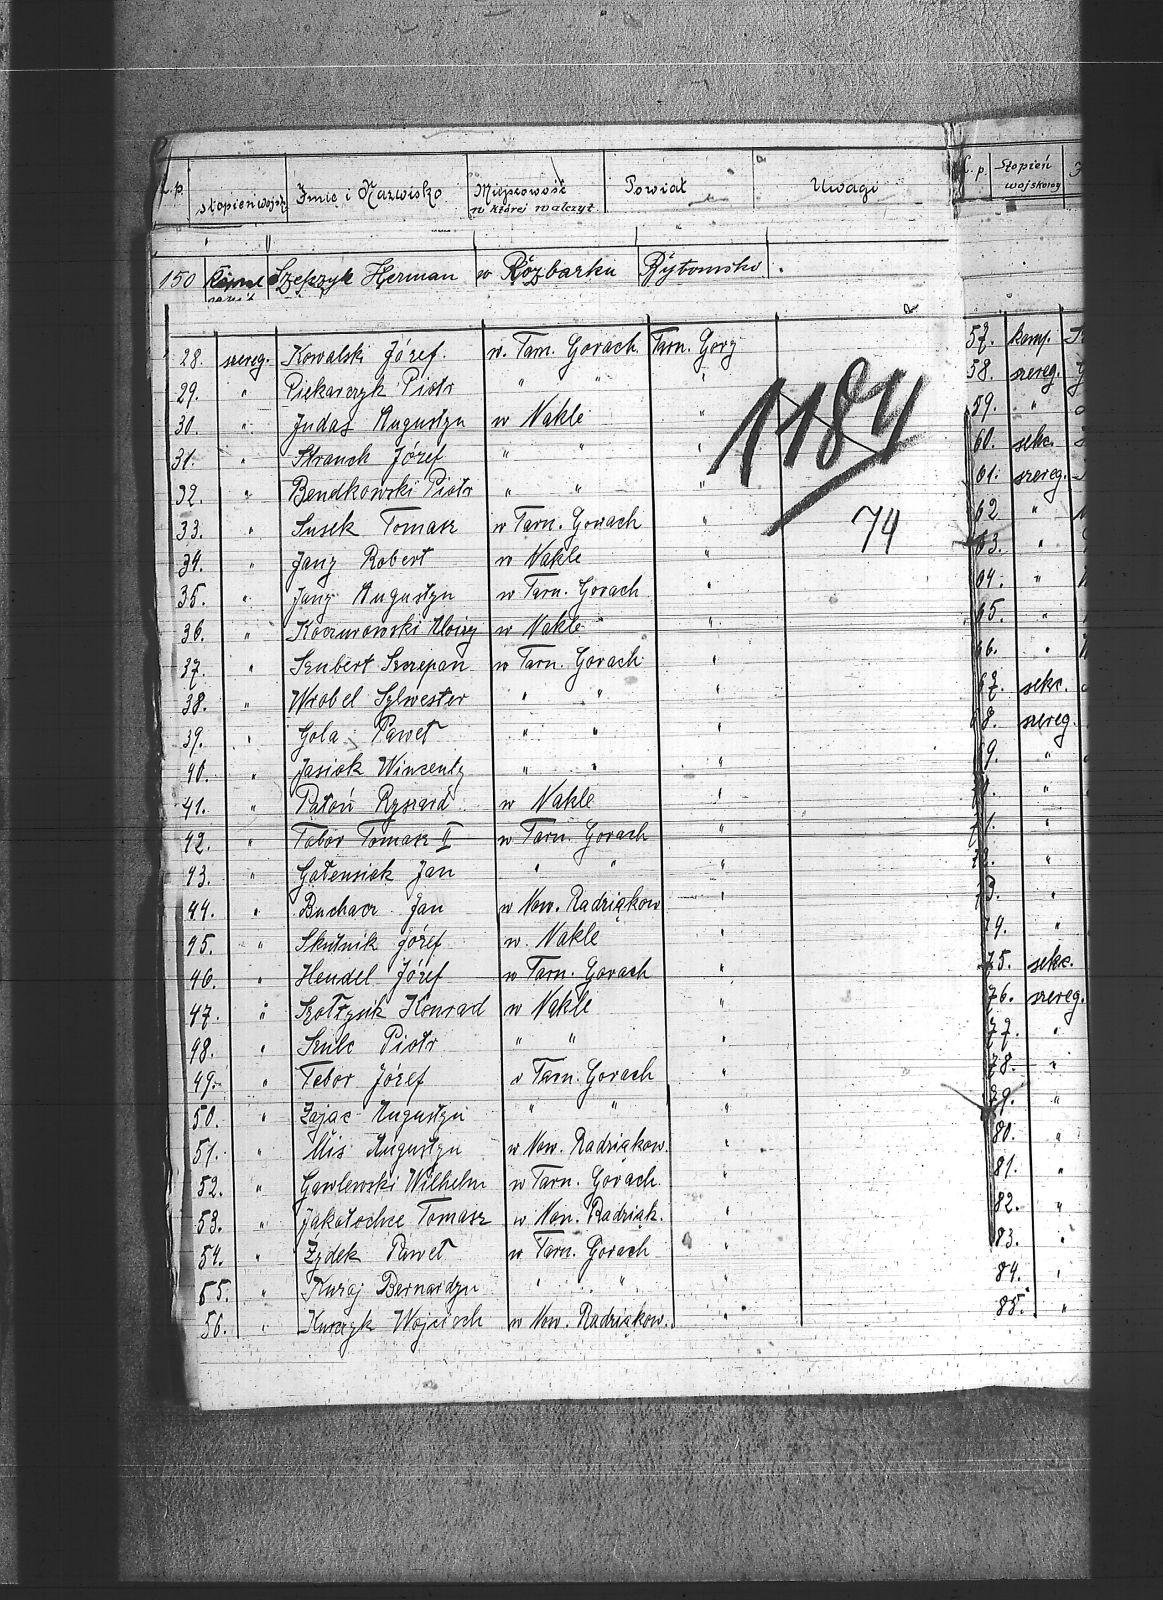 L.p. stopień wojsk. Imię i Nazwisko Miejscowość w której walczył Powiat Uwagi
150 Herman w Rozbarku Bytomsko
28. szereg. Kowalski Józef w. Tarn. Gorach Tarn. Gory
29. " Piekarczyk Piotr " " "
30. " Judas Augustyn w Nakle "
1184
31. " Strauch Józef " " "
32. " Bendkowski Piotr " " "
33. " Susek Tomasz w Tarn. Gorach "
74
34. " Jany Robert w Nakle "
35. " Jany Augustyn w Tarn. Gorach "
36. " Koczurowski Aloizy w Nakle "
37. " Szubert Szczepan w Tarn. Gorach "
38. " Wrobel Sylwester " " "
39. " Gola Paweł " " "
40. " Jasiok Wincenty " " "
41. " Patoń Ryszard w Nakle "
42. " Tobor Tomasz II w Tarn. Gorach "
43. " Gołensiak Jan " " "
44. " Buchacz Jan w Now. Radziąkow "
45. " Skutnik Józef w. Nakle "
46. " Hendel Józef w Tarn. Gorach "
47. " Konrad w Nakle "
48. " Szulc Piotr " " "
49. " Tobor Józef w Tarn. Gorach "
50. " Zając Augustyn " " "
51. " Mis Augustyn w Now. Radziąkow. "
52. " Gawlewski Wilhelm w Tarn. Gorach. "
53. " Tomasz w Now. Radziąk. "
54. " Zydek Paweł w Tarn. Gorach "
55. " Kuraj Bernardyn " " "
56. " Wojciech w Now. Radziąkow. "
L.p. Stopień wojskowy
57. komp.
58. szereg.
59. "
60. sekc.
61. szereg.
62 "
63. "
64. "
65. "
66. "
67. sekc.
68. szereg.
69. "
"
71. "
72. "
73. "
74. "
75. sekc.
76. szereg.
77. "
78. "
79. "
80. "
81. "
82. "
83. "
84. "
85. "